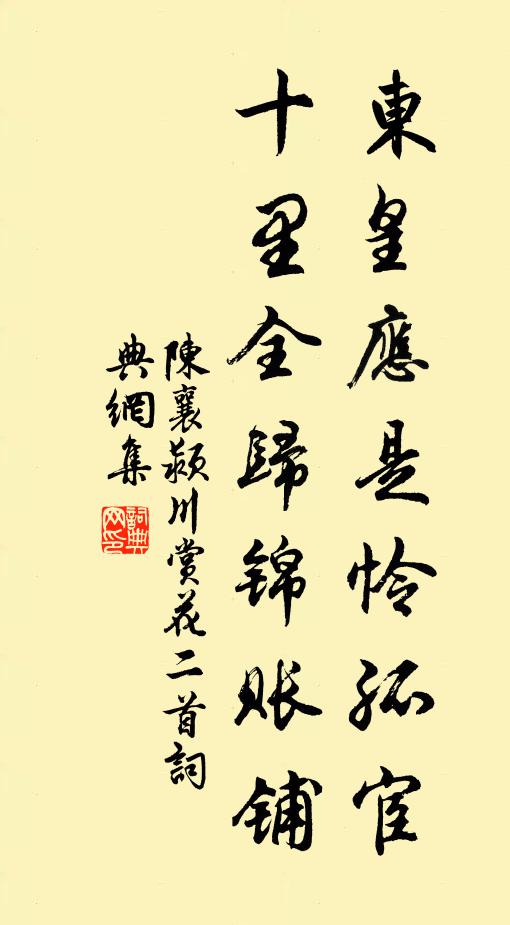 東皇應是怜孤宦
十里全歸锦账铺
陳襄颍川賞花二首詞
典網集
詞典網印